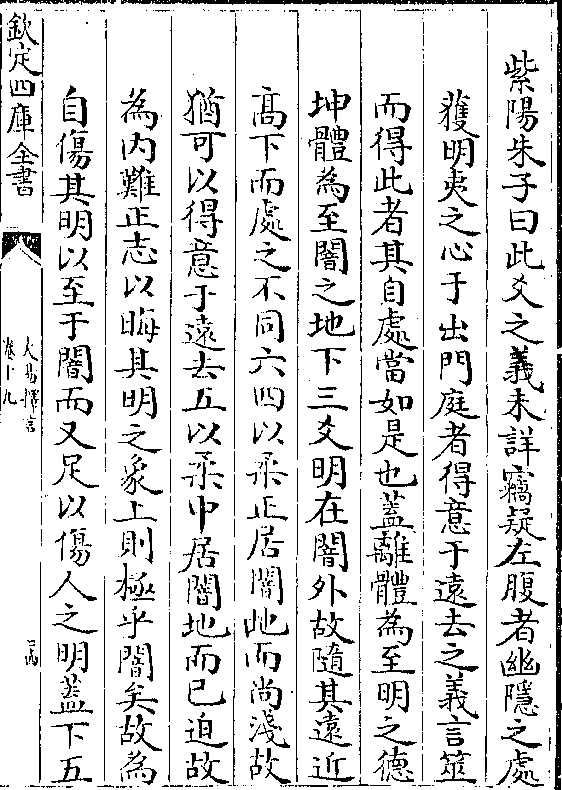 紫陽朱子曰此爻之義未詳竊疑左腹者幽隱之處
獲明夷之心于出門庭者得意于逺去之義言筮
而得此者其自處當如是也蓋離體為至明之德
坤體為至闇之地下三爻明在闇外故隨其逺近
髙下而處之不同六四以柔正居闇地而尚淺故
猶可以得意于逺去五以柔中居闇地而已迫故
為内難正志以晦其明之象上則極乎闇矣故為
自傷其明以至于闇而又足以傷人之明蓋下五
欽定四庫全書
大易擇言
卷十九